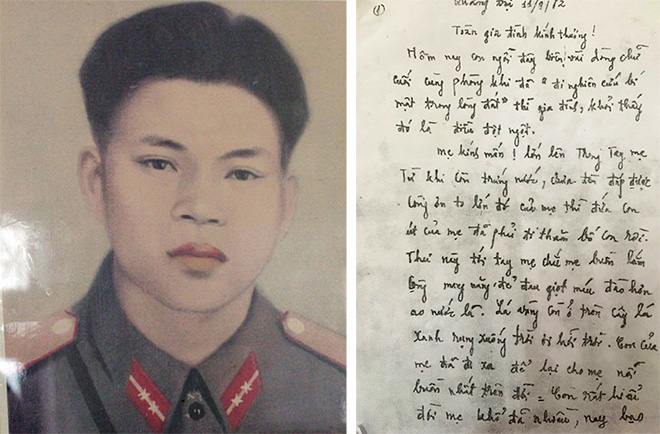 (1)
Quảng Trị 11/9/72
Toàn gia đình kính thương!
Hôm nay con ngồi đây biên vài dòng chữ
cuối cùng phòng khi đã "đi nghiên cứu bí
mật trong lòng đất" thì gia đình, khỏi thấy
đó là điều đột ngột.
Mẹ kính mến! lớn lên trong tay mẹ
Từ khi còn trứng nước, chưa đền đáp được
Công ơn to lớn đó của mẹ thì đứa con
út của mẹ đã phải đi thăm bố con rồi.
Thư này tới tay mẹ chắc mẹ buồn lắm
lòng mẹ nặng để đau giọt máu đào hơn
ao nước lã. Lá vàng còn ở trên cây lá
xanh rụng xuống trời ơi hỡi trời. Con của
mẹ đã đi xa để lại cho mẹ nỗi
buồn nhất trên đời = Con rất hiểu
đời mẹ khổ đã nhiều, nay bao